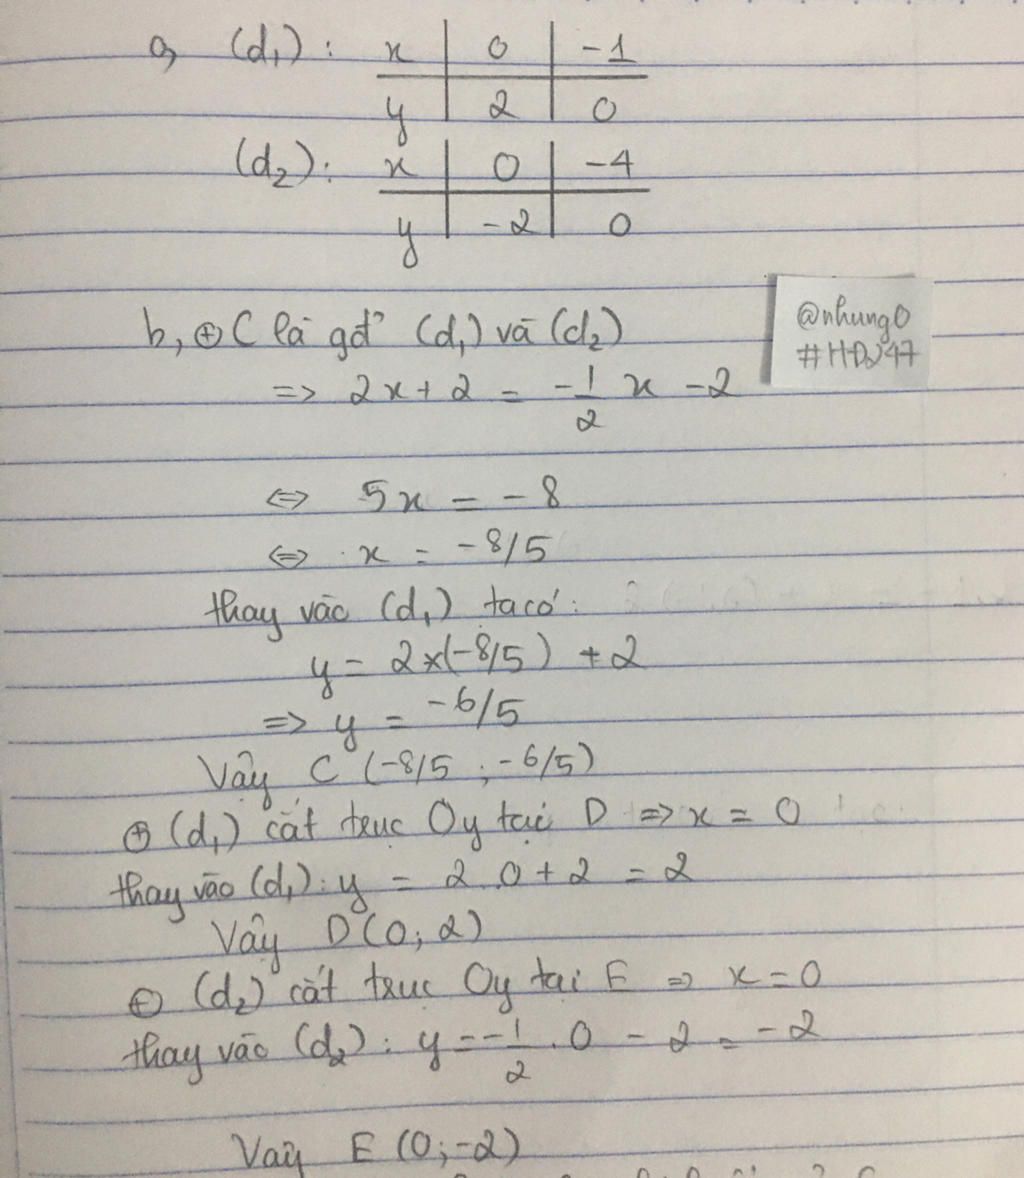 a, (d₁): x | 0 | -1
y | 2 | 0
(d₂): x | 0 | -4
y | -2 | 0
@nhung0
b, ⊕ C là gđ² (d₁) và (d₂)
=> 2x + 2 = -1/2 x - 2
<=> 5x = -8
<=> x = -8/5
thay vào (d₁) ta có:
y = 2x(-8/5) + 2
=> y = -6/5
Vậy C (-8/5 ; -6/5)
⊕ (d₁) cắt trục Oy tại D => x = 0
thay vào (d₁): y = 2.0 + 2 = 2
Vậy D (0; 2)
⊕ (d₂) cắt trục Oy tại E => x = 0
thay vào (d₂): y = -1/2 . 0 - 2 = -2
Vậy E (0; -2)